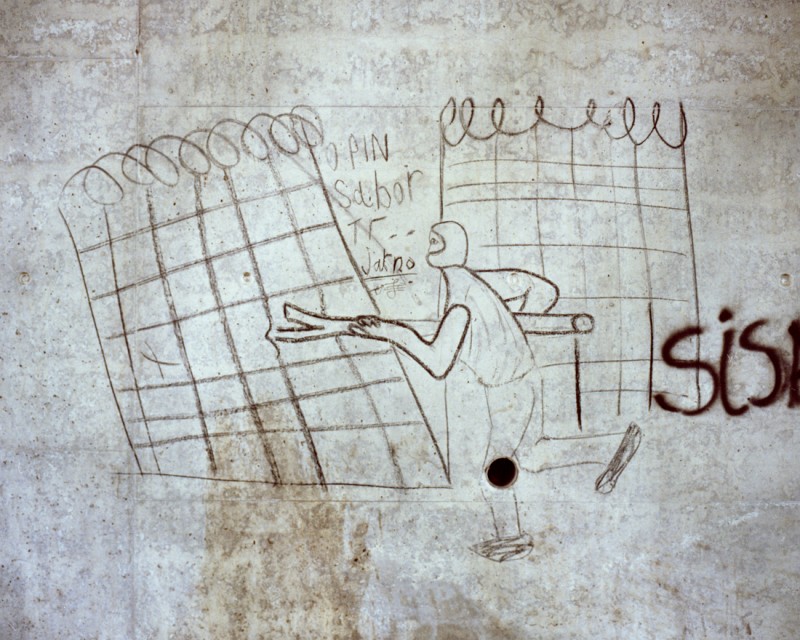 OPIN
Sabor
TT--
Jatno
SiSi